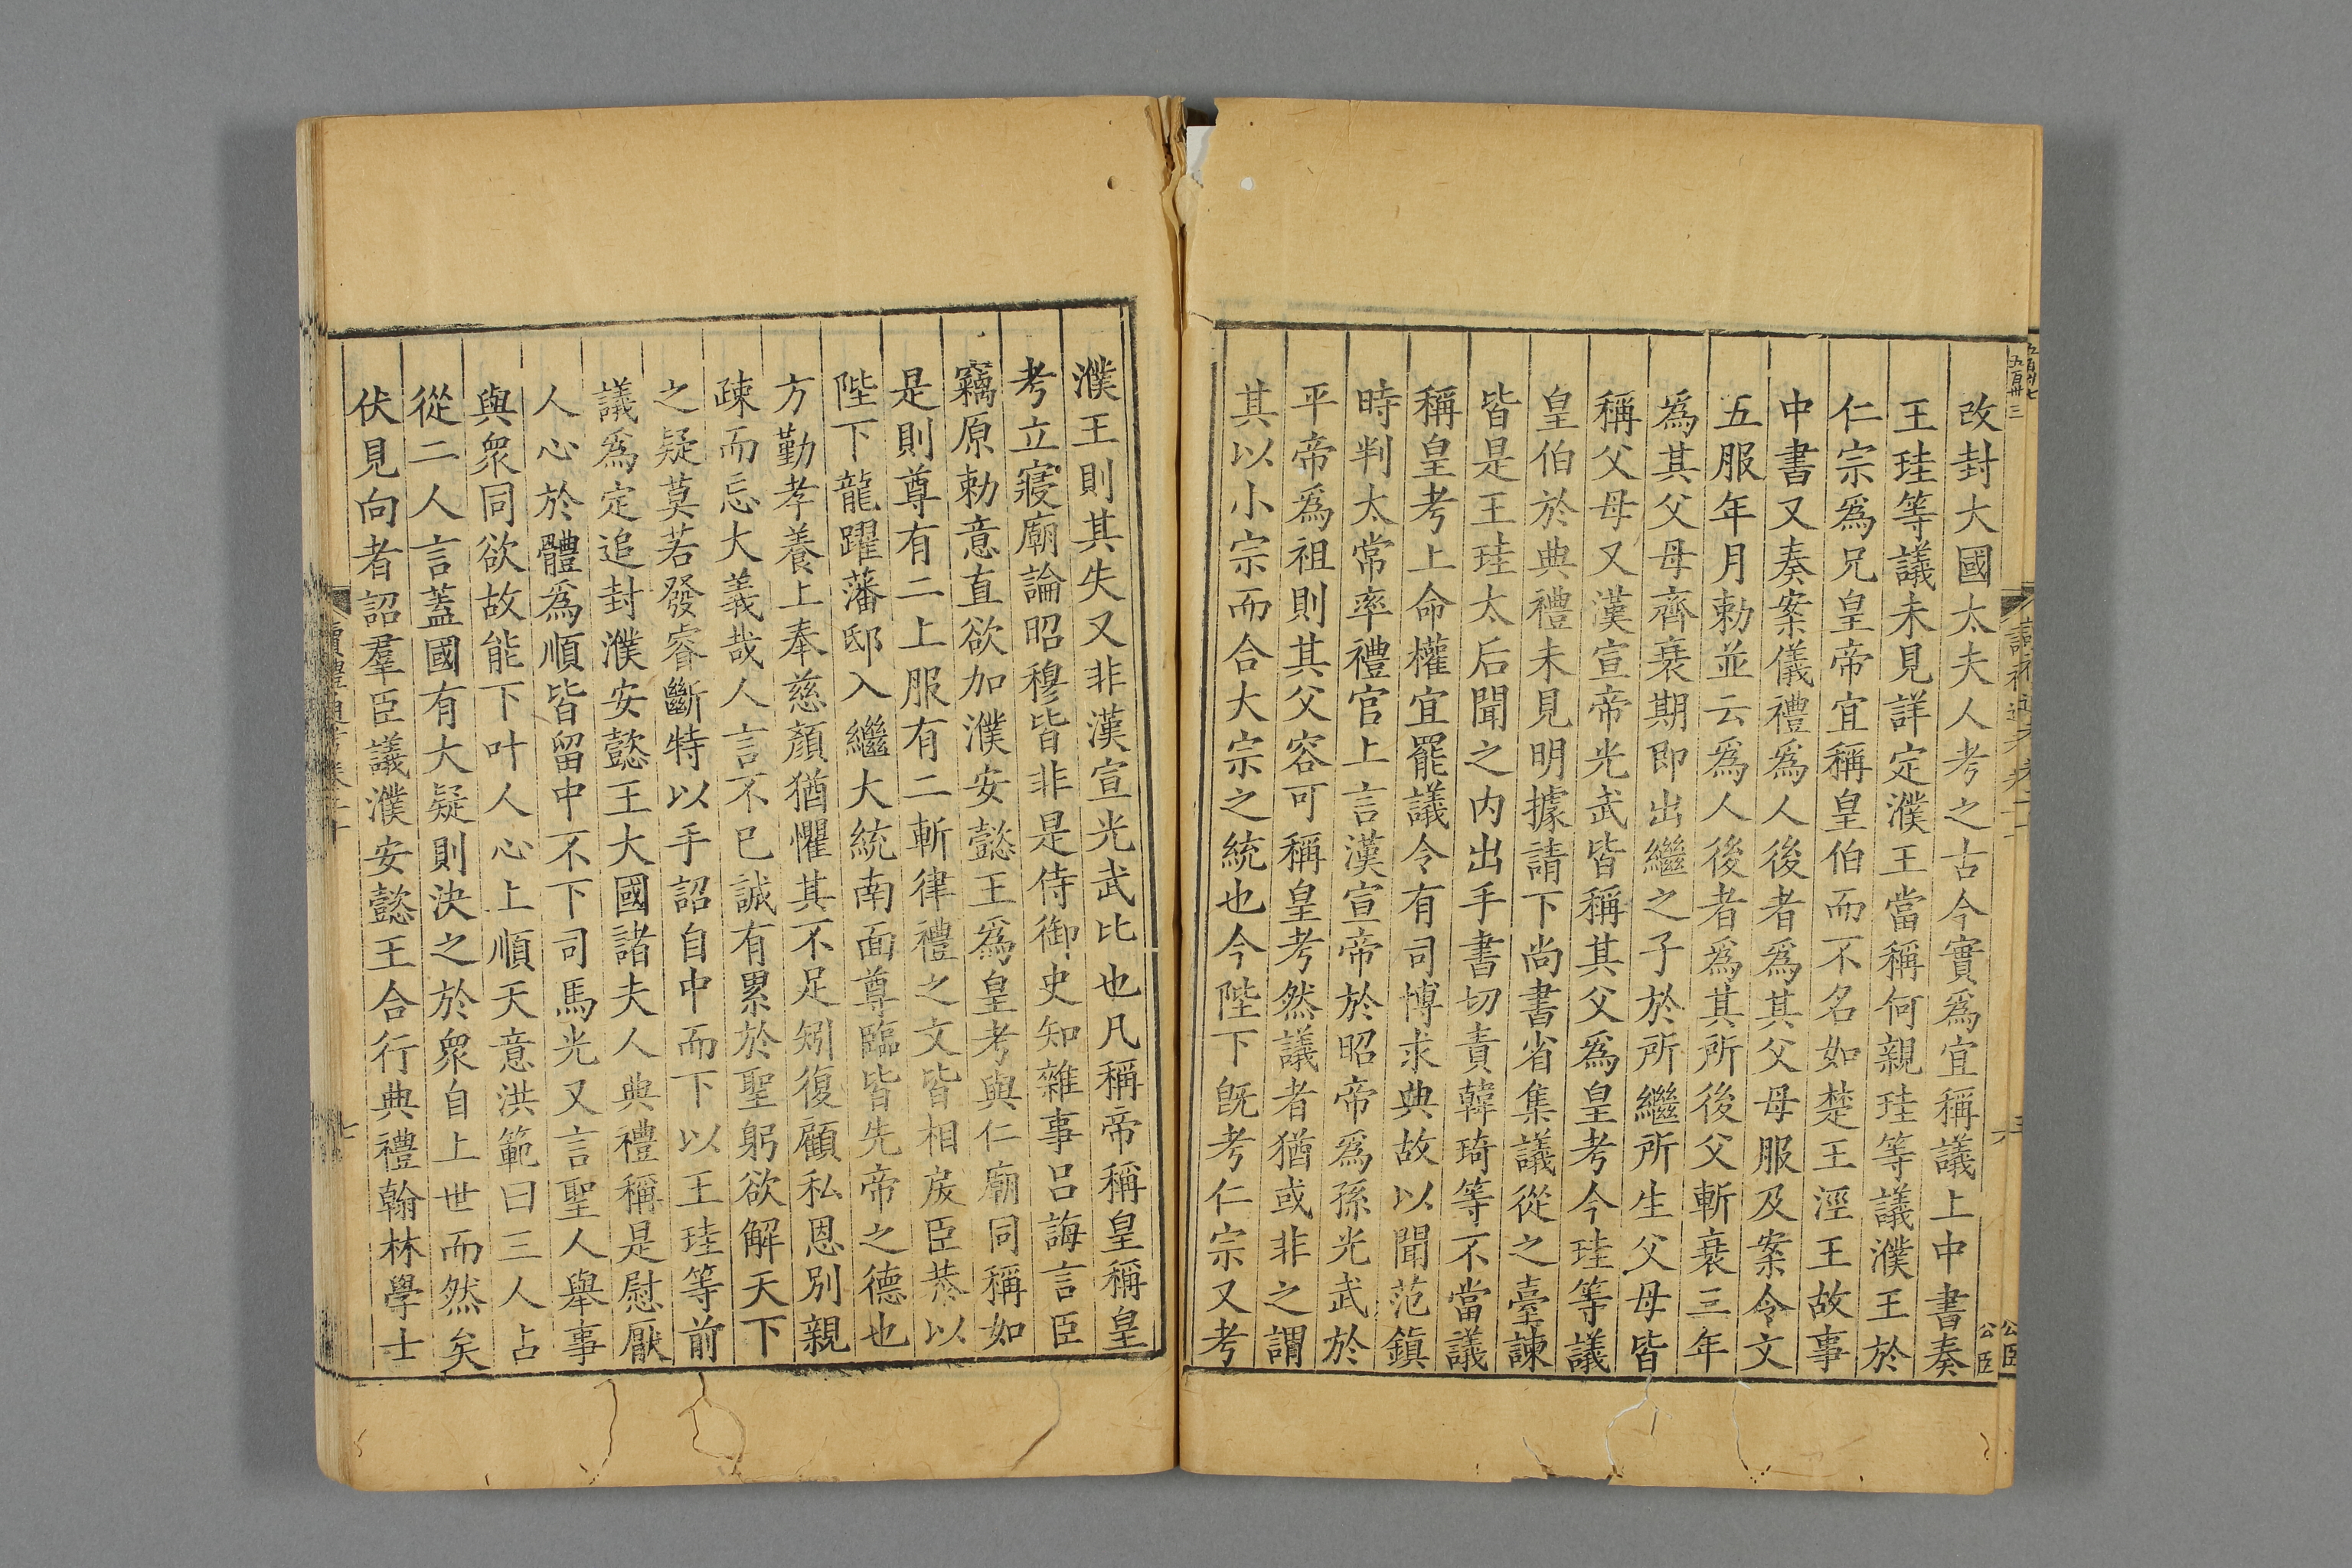 改封大國太夫人考之古今實爲宜稱議上中書奏
王珪等議未見詳定濮王當稱何親珪等議濮王於
仁宗爲兄皇帝宜稱皇伯而不名如楚王涇王故事
中書又奏案儀禮爲人後者爲其父母服及案令文
五服年月勅並云爲人後者爲其所後父斬衰三年
爲其父母齊衰期即出繼之子於所繼所生父母皆
稱父母又漢宣帝光武皆稱其父爲皇考今珪等議
皇伯於典禮未見明據請下尚書省集議從之臺諫
皆是王珪太后聞之内出手書切責韓琦等不當議
稱皇考上命權宜罷議令有司博求典故以聞范鎮
時判太常率禮官上言漢宣帝於昭帝爲孫光武於
平帝爲祖則其父容可稱皇考然議者猶或非之謂
其以小宗而合大宗之統也今陛下旣考仁宗又考
濮王則其失又非漢宣光武比也凡稱帝稱皇稱皇
考立寢廟論昭穆皆非是侍御史知雜事吕誨言臣
竊原勅意直欲加濮安懿王爲皇考與仁廟同稱如
是則尊有二上服有二斬律禮之文皆相戾臣恭以
陛下龍躍藩邸入繼大統南面尊臨皆先帝之德也
方勤孝養上奉慈顔猶懼其不足矧復顧私恩别親
疎而忘大義哉人言不已誠有累於聖躬欲解天下
之疑莫若發睿斷特以手詔自中而下以王珪等前
議爲定追封濮安懿王大國諸夫人典禮稱是慰厭
人心於體爲順皆留中不下司馬光又言聖人舉事
與衆同欲故能下叶人心上順天意洪範曰三人占
從二人言蓋國有大疑則決之於衆自上世而然矣
伏見向者詔羣臣議濮安懿王合行典禮翰林學士